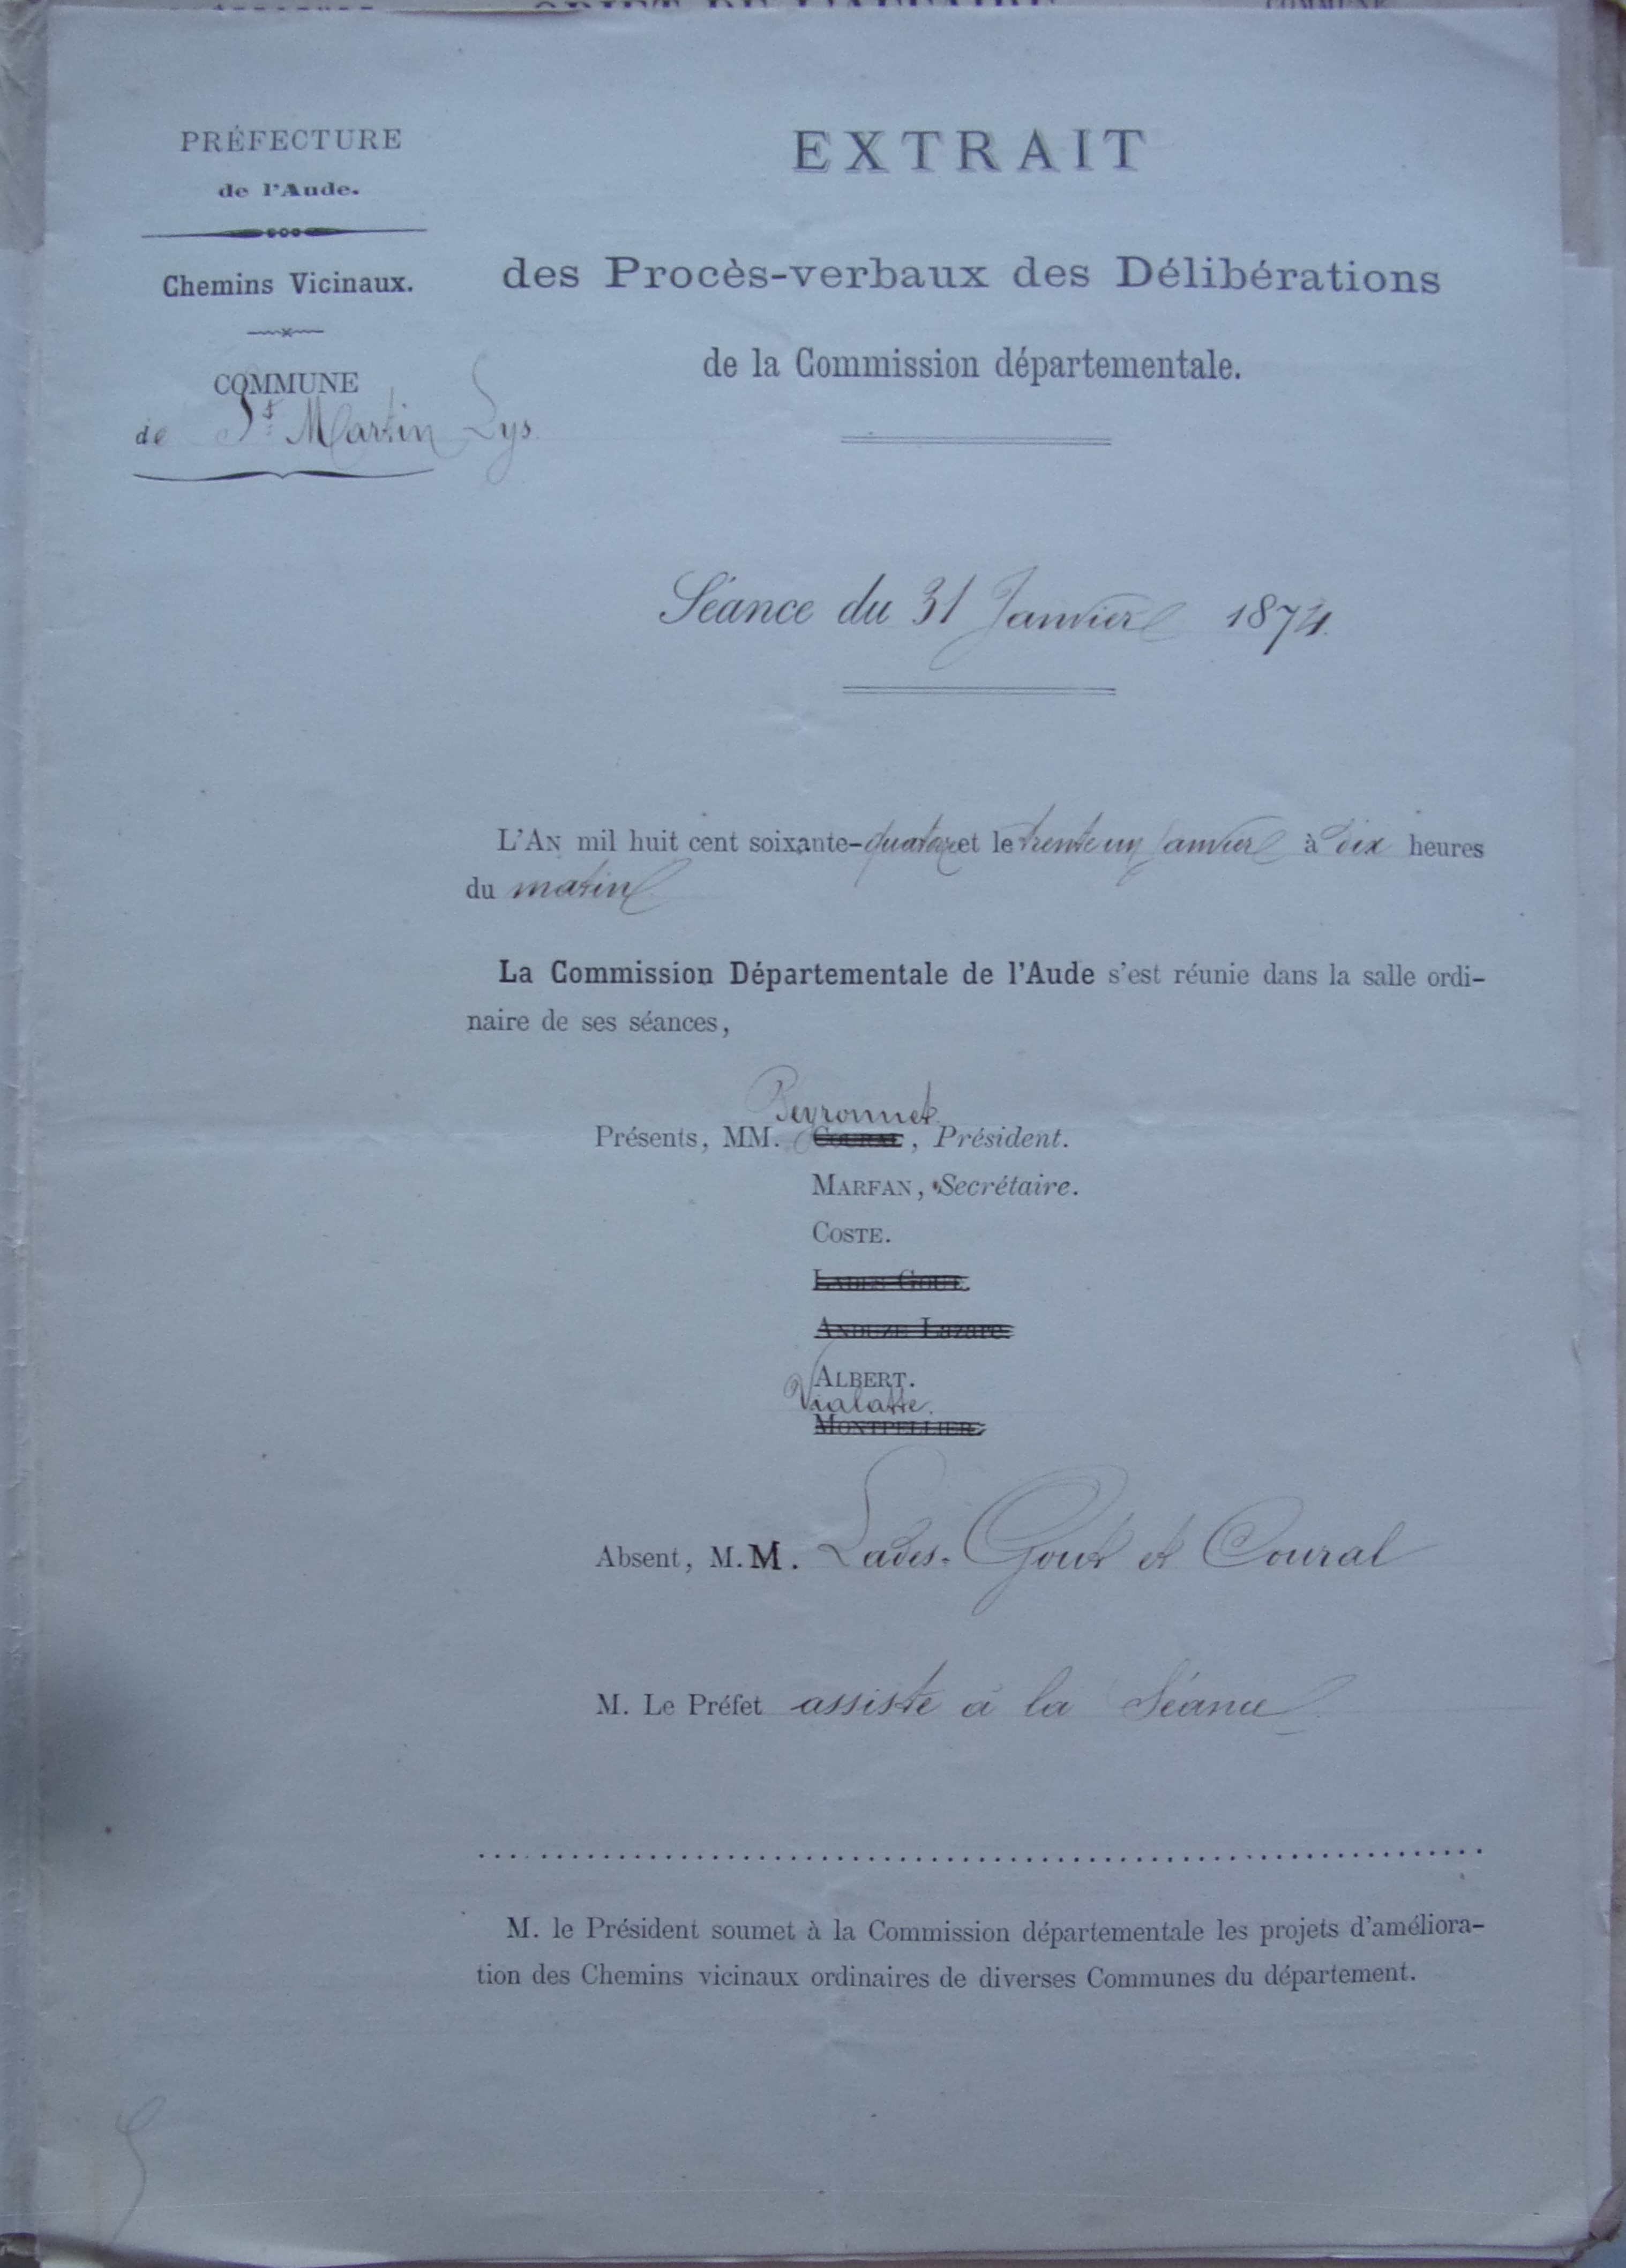 PRÉFECTURE
de l'Aude.
Chemins Vicinaux.
COMMUNE
de St Martin Lys
EXTRAIT
des Procès-verbaux des Délibérations
de la Commission départementale.
Séance du 31 Janvier 1874.
L'AN mil huit cent soixante-quatorze et le trente un janvier à dix heures
du matin
La Commission Départementale de l'Aude s'est réunie dans la salle ordi-
naire de ses séances,
Peyronnet
Présents, MM. COURAL, Président.
MARFAN, Secrétaire.
COSTE.
LADES-GOUT.
ANDUZE Lazare.
ALBERT.
Vialatte.
MONTPELLIER.
Absent, M.M. Lades-Gout et Coural
M. Le Préfet assiste à la Séance
M. le Président soumet à la Commission départementale les projets d'améliora-
tion des Chemins vicinaux ordinaires de diverses Communes du département.